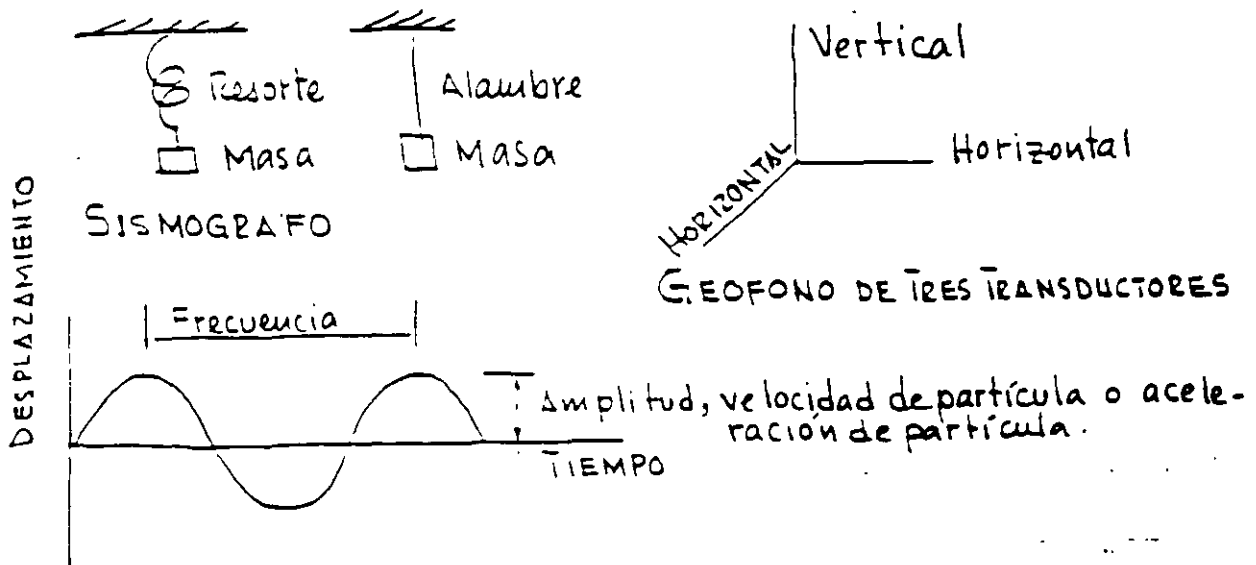 Resorte
Alambre
Masa
Masa
SISMOGRAFO
Vertical
Horizontal
HORIZONTAL
GEOFONO DE TRES TRANSDUCTORES
DESPLAZAMIENTO
Frecuencia
Amplitud, velocidad de partícula o acele-
ración de partícula.
TIEMPO